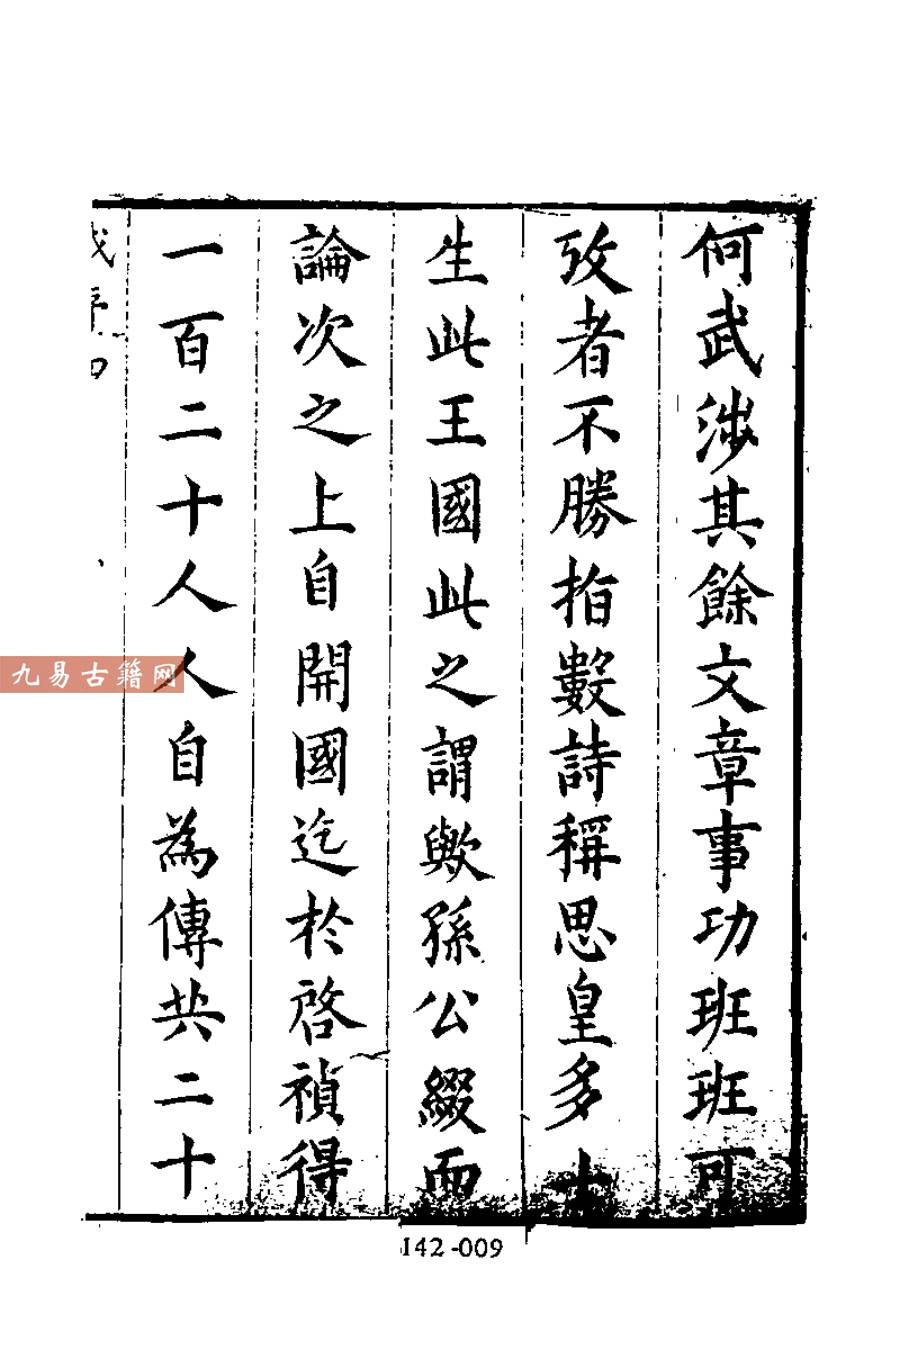 何武涉其餘文章事功班班可
攷者不勝指數詩稱思皇多士
生此王國此之謂歟孫公綴而
論次之上自開國迄於啓禎得
一百二十人人自為傳共二十
九易古籍网
142-009